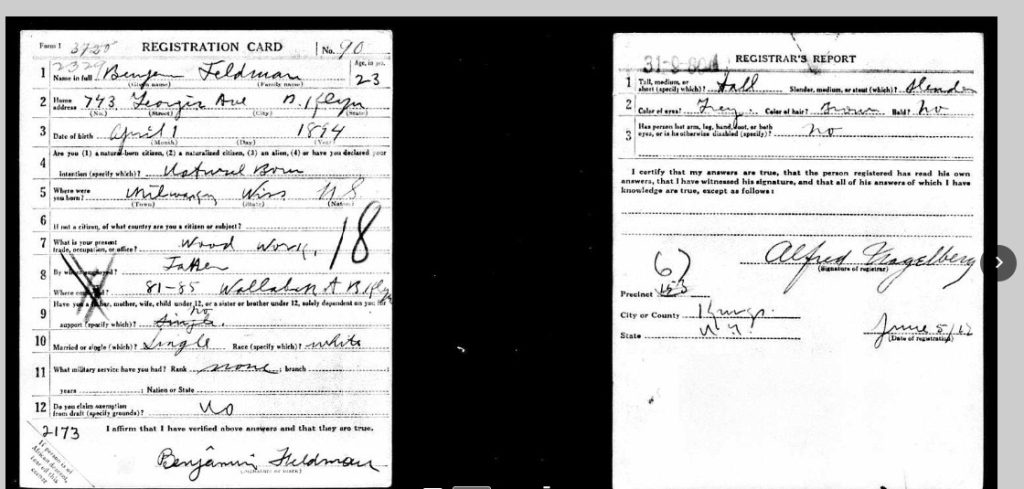 Form 1 3725 REGISTRATION CARD No. 90
2329
1 Name in full Benjamin Feldman Age, in yrs. 23
(Given name) (Family name)
2 Home address 743 Georgia Ave B.klyn
(No.) (Street) (City) (State)
3 Date of birth April 1 1894
(Month) (Day) (Year)
4 Are you (1) a natural-born citizen, (2) a naturalized citizen, (3) an alien, (4) or have you declared your
intention (specify which)? Natural Born
5 Where were you born? Wis. US
(Town) (State) (Nation)
6 If not a citizen, of what country are you a citizen or subject?
7 What is your present trade, occupation, or office? Wood Work. 18
8 By whom employed? Father
Where employed? 81-85 Wallabout B.klyn
9 Have you a father, mother, wife, child under 12, or a sister or brother under 12, solely dependent on you for
support (specify which)? no
single.
10 Married or single (which)? Single Race (specify which)? white
11 What military service have you had? Rank none; branch
years; Nation or State
12 Do you claim exemption from draft (specify grounds)? No
2173 I affirm that I have verified above answers and that they are true.
Benjamin Feldman
If person is of African descent, tear off this corner
REGISTRAR'S REPORT
1 Tall, medium, or short (specify which)? tall Slender, medium, or stout (which)? Slender
2 Color of eyes? Grey Color of hair? Brown Bald? No
3 Has person lost arm, leg, hand, foot, or both eyes, or is he otherwise disabled (specify)? no
I certify that my answers are true, that the person registered has read his own
answers, that I have witnessed his signature, and that all of his answers of which I have
knowledge are true, except as follows:
Alfred Nagelberg
(Signature of registrar)
67
Precinct 153
City or County Kings.
State N.Y. June 5/17
(Date of registration)